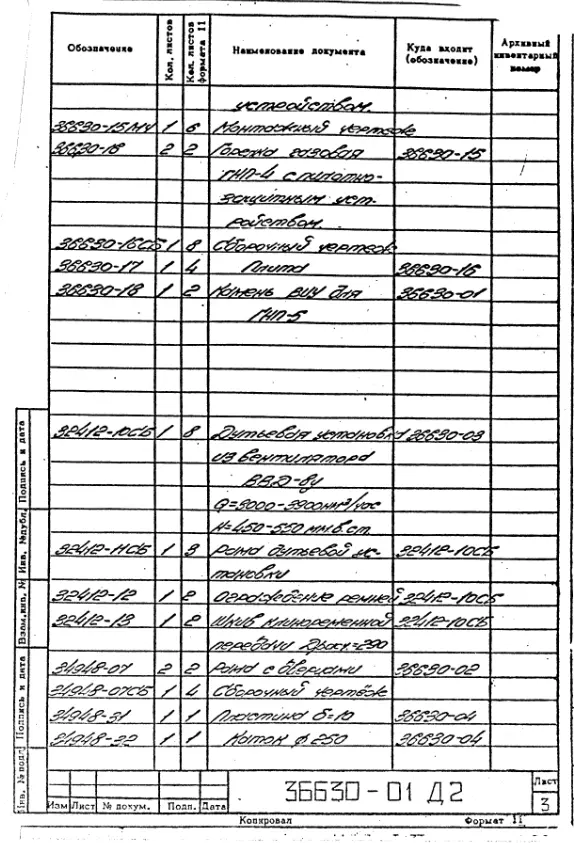 Обозначение Кол. листов Кол. листов формата 11 Наименование документа Куда входит (обозначение) Архивный инвентарный номер
устройством.
36630-15МЧ 1 6 Монтажный чертеж
36630-16 2 2 Горелка газовая 36630-15
ГНП-4 с пилотно-
защитным уст-
ройством.
36630-16СБ 1 8 Сборочный чертеж
36630-17 1 4 Плита 36630-16
36630-18 1 2 Камень ВИЧ для 36630-01
ГНП-5
32412-10СБ 1 8 Дутьевая установка 36630-03
из вентилятора
ВВД-8у
Q=3000-3900нм³/час
H=450-550 мм в.ст.
32412-11СБ 1 3 Рама дутьевой ус- 32412-10СБ
тановки
32412-12 1 2 Ограждение ремней 32412-10СБ
32412-13 1 2 Шкив клиноременной 32412-10СБ
передачи =290
34948-07 2 2 Рама с дверцами 36630-02
34948-07СБ 1 4 Сборочный чертеж
34948-31 1 1 Пластина δ=10 36630-04
34948-32 1 1 Каток ф 250 36630-04
Инв. № подл. Подпись и дата Взам. инв. № Инв. № дубл. Подпись и дата
Изм Лист № докум. Подп. Дата
36630-01 Д2
Лист
3
Копировал Формат 11